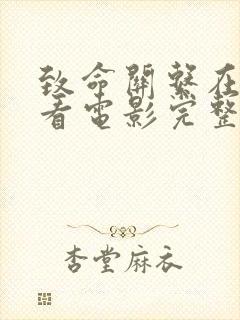 致命關繫在
看電影完整
杏堂麻衣